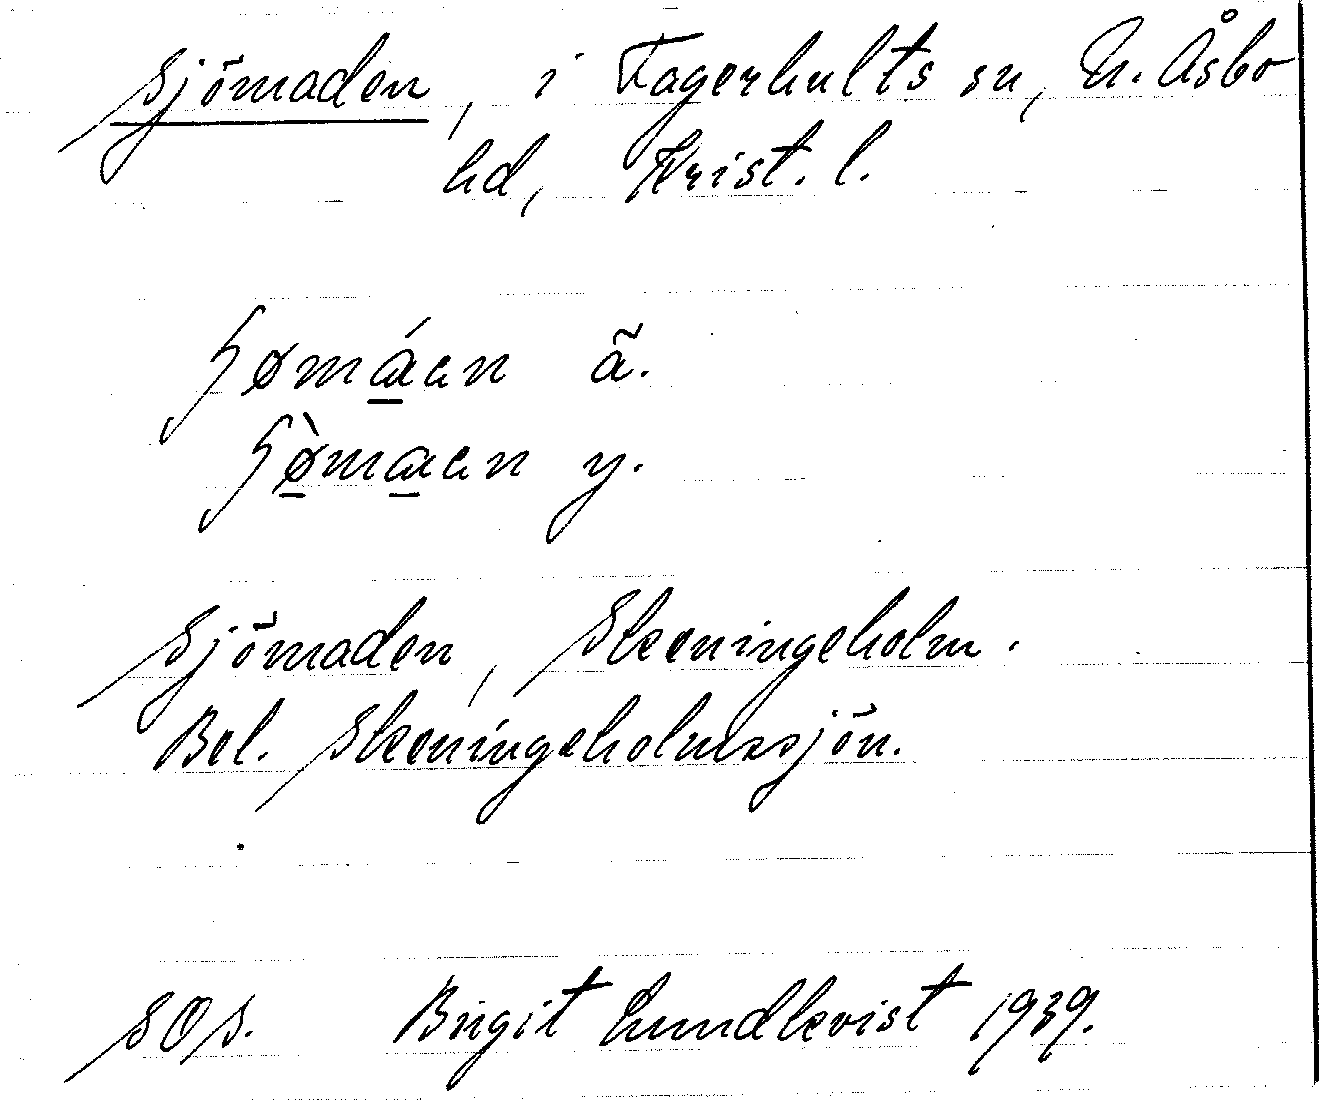 Sjömaden, i Fagerhults sn, N. Åsbo
hd, Krist. l.
ɧømáen ä.
ɧø̀maen y.
Sjömaden, Skeeningeholm.
Bel. Skeeningeholmssjön.
SOS. Birgit Lundkvist 1939.